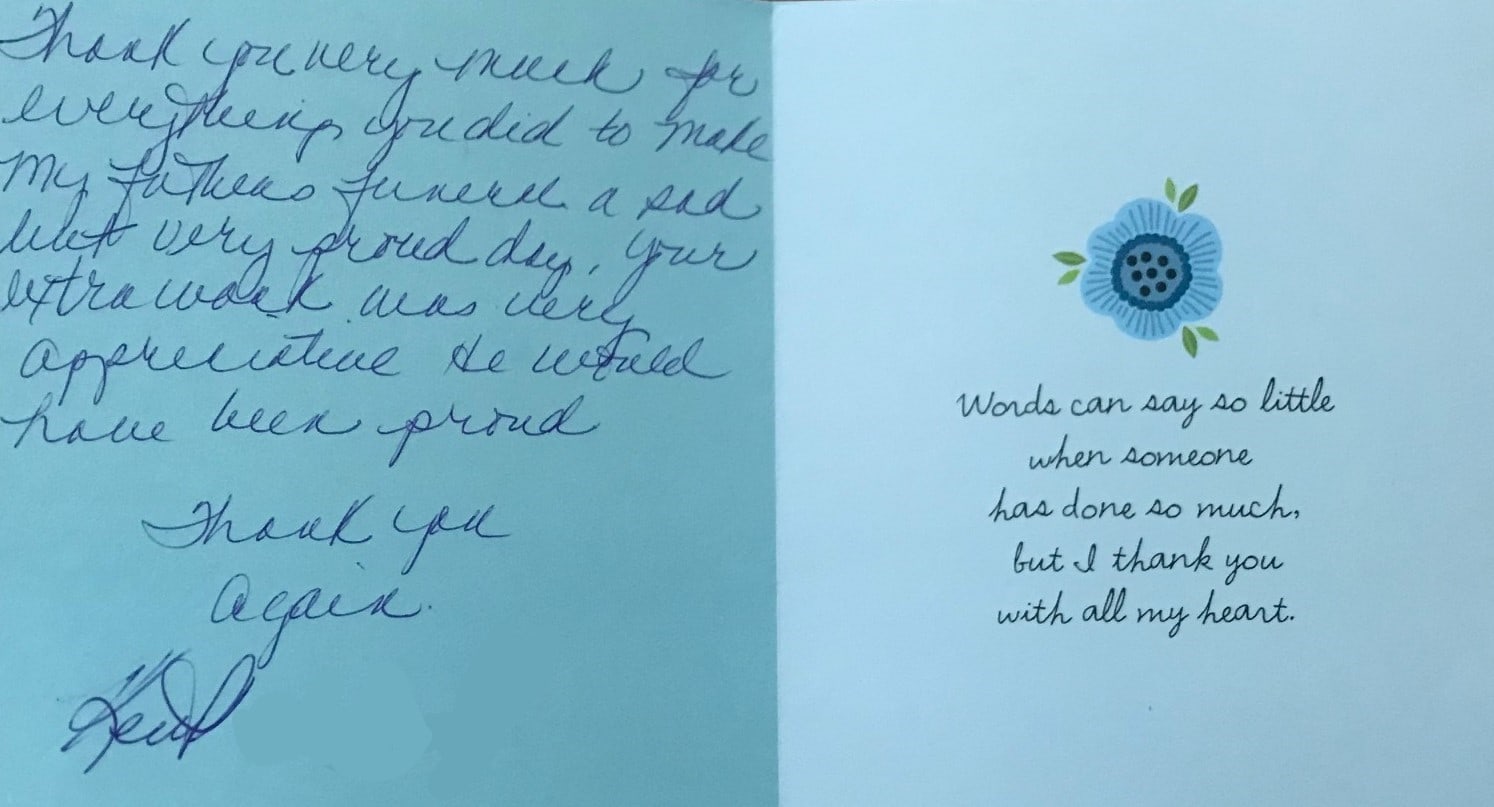 Thank you very much for
everything you did to make
My Fathers funeral a sad
but very proud day, your
extra work was very
appreciative He would
have been proud
Thank you
Again.
Words can say so little
when someone
has done so much,
but I thank you
with all my heart.